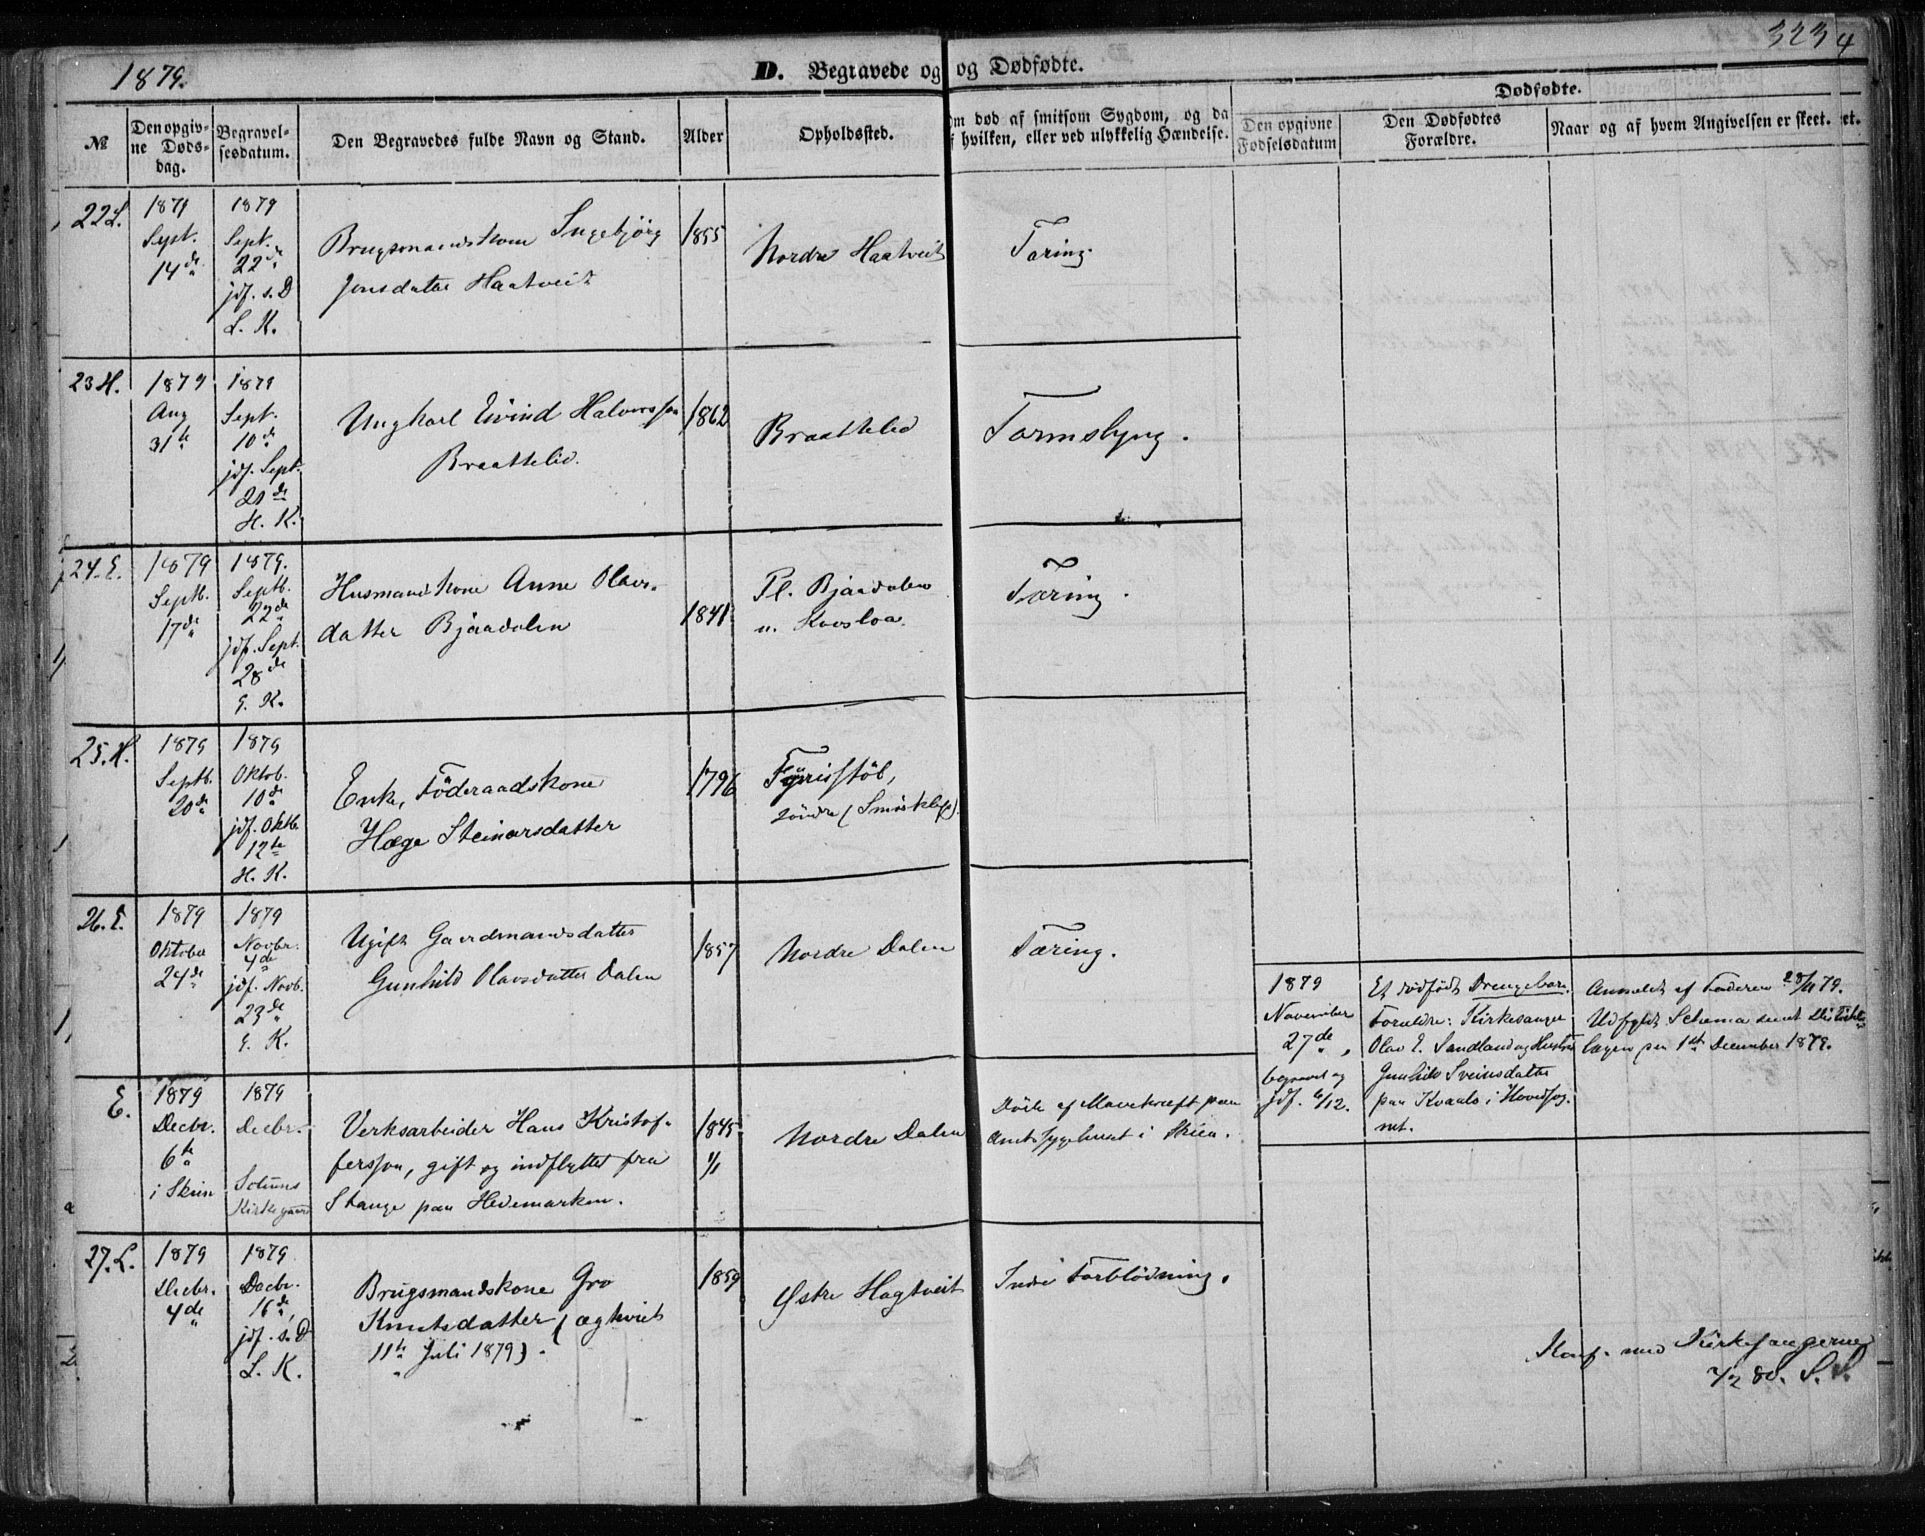 1879.
D. Begravede og
og Dødfødte.
323
4
№
Den opgiv-
ne Døds-
dag.
Begravel-
sesdatum.
Den Begravedes fulde Navn og Stand.
Alder
Opholdssted.
Om død af smitsom Sygdom, og da
af hvilken, eller ved ulykkelig Hændelse.
Dødfødte.
Den opgivne
Fødselsdatum
Den Dødfødtes
Forældre.
Naar og af hvem Angivelsen er skeet.
22 L.
1879
Sept.
14de
1879
Sept.
22de
jdf. s. D
L. K.
Brugsmandskone Ingebjörg
Jonsdatter Haatveit
1855
Nordre Haatveit
Tæring.
23 H.
1879
Aug
31te
1879
Sept.
10de
jdf. Sept.
21de
H. K.
Ungkarl Eivind Halvorssøn
Braattelid.
1862
Braattelid
Tarmslyng.
24. E.
1879
Septb.
17de
1879.
Septb.
22de
jdf. Sept.
28de
E. K.
Husmandskone Anne Olavs-
datter Bjaadalen
1841.
Pl. Bjaadalen
u. Kovsloa.
Tæring.
25. H.
1879
Septb.
20de
1879
Oktob.
10de
jdf. Oktb.
12te
H. K.
Enke, Föderaadskone
Hæge Steinarsdatter
1796
söndre (Smörklep).
26. E.
1879
Oktober
24de
1879
Novbr.
4de
jdf. Novb.
23de
E. K.
Ugift Gaardmandsdatter
Gunhild Olavsdatter Dalen
1857
Nordre Dalen
Tæring.
1879
November
27de,
begravet og
jdf. 6/12.
Et dödfödt Drengebarn.
Forældre: Kirkesanger
Olav E. Sandland og Hustru
Gunhild Sveinsdatter
paa Kvaale i Hovedsog-
net.
Anmeldt af Faderen 28/11 79.
Udfyldt Schema sendt Distrikts-
lægen pr 1ste December 1879.
E.
1879
Decbr.
6te
i Skien
1879
Decbr.
Solums
Kirkegaard
Verksarbeider Hans Kristof-
fersson, gift og indflyttet fra
Stange paa Hedemarken.
1845
1/1
Nordre Dalen
Döde af Mavekræft paa
Amtssygehuset i Skien.
27. L.
1879
Decbr.
4de
1879
Decbr.
16de,
jdf. s. D
L. K.
Brugsmandskone Gro
Knutsdatter (ægtviet
11te Juli 1879).
1859
Østre Hagtveit
Indre Forblödning.
Konf. med Kirkesangerne
7/2 80. S. S.